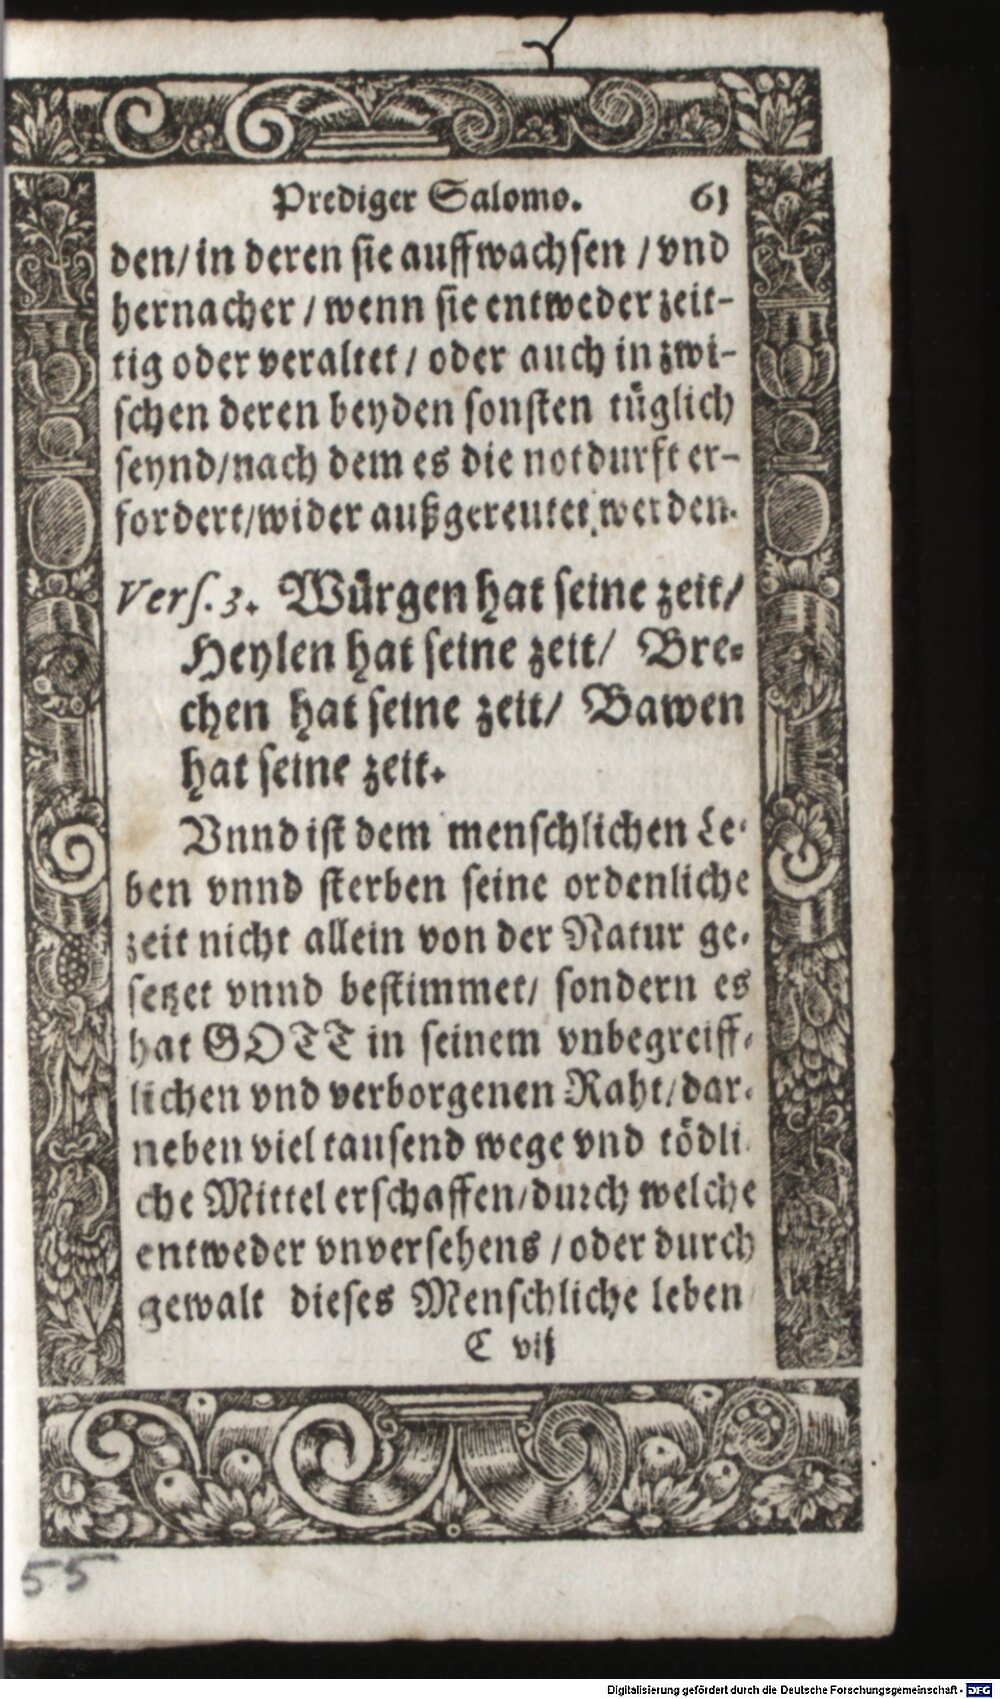 Prediger Salomo. 61
den/ in deren sie auffwachsen / vnd
hernacher / wenn sie entweder zeit-
tig oder veraltet / oder auch in zwi-
schen deren beyden sonsten tüglich
seynd/nach dem es die notdurft er-
fordert/wider außgereutet werden.
Vers. 3. Würgen hat seine zeit/
Heylen hat seine zeit/ Bre-
chen hat seine zeit/ Bawen
hat seine zeit.
Vnnd ist dem menschlichen Le-
ben vnnd sterben seine ordenliche
zeit nicht allein von der Natur ge-
setzet vnnd bestimmet/ sondern es
hat GOTT in seinem vnbegreiff-
lichen vnd verborgenen Raht/dar-
neben viel tausend wege vnd tödli
che Mittel erschaffen/durch welche
entweder vnversehens / oder durch
gewalt dieses Menschliche leben
C vij
55
Digitalisierung gefördert durch die Deutsche Forschungsgemeinschaft - DFG